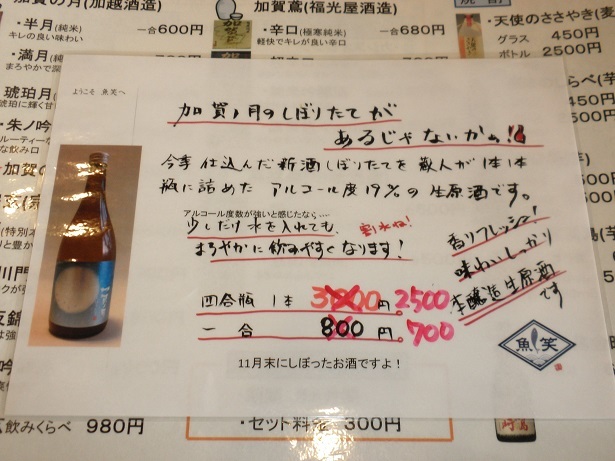 加賀の月(加越酒造)
・半月(純米)
キレの良い味わい
一合600円
・満月
加賀鳶(福光屋酒造)
・辛口(極寒純米)
軽快でキレが良い辛口
一合680円
・天使のささやき(麦
グラス 450円
ボトル 2500円
ようこそ 魚笑へ
加賀ノ月のしぼりたてが
あるじゃないかぁ!!
今季仕込んだ新酒しぼりたてを蔵人が1本1本
瓶に詰めた アルコール度19%の生原酒です。
アルコール度数が強いと感じたなら‥‥
少しだけ水を入れても、
割水ね!
まろやかに飲みやすくなります!
香りフレッシュ!
味わいしっかり
本醸造生原酒
です
四合瓶 1本 3000円 2500
一合 800円 700
魚笑
11月末にしぼったお酒ですよ!
飲みくらべ 980円
・セット料金 300円